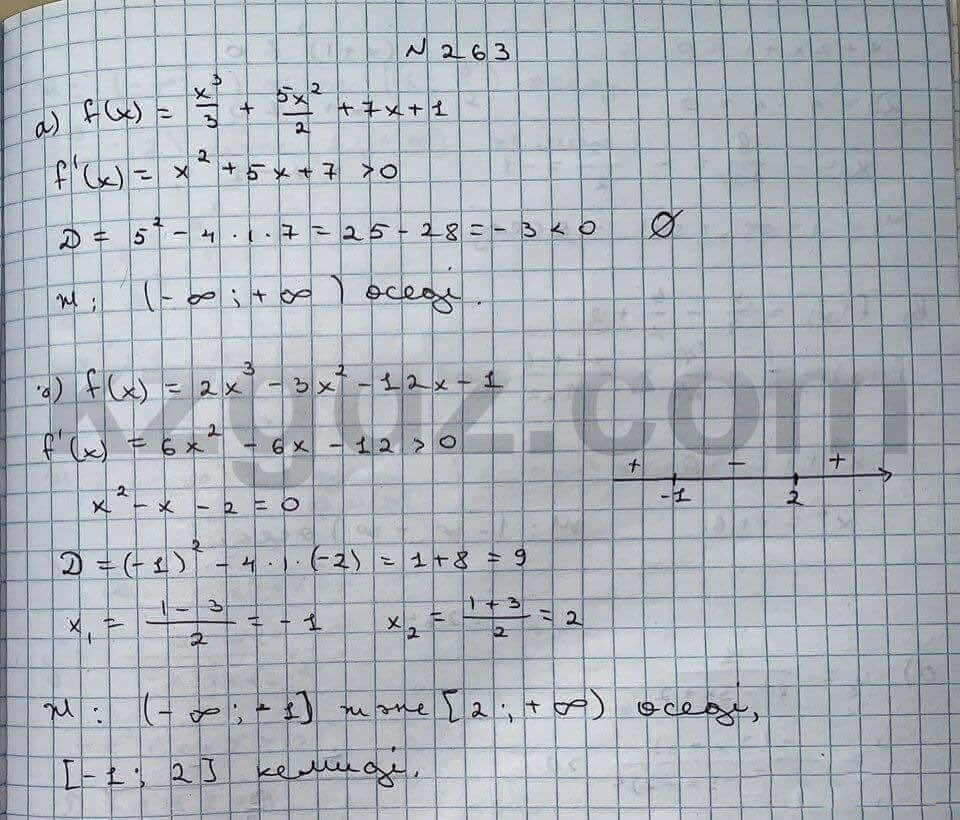 N 263
а) f(x) = x³/3 + 5x²/2 + 7x + 1
f'(x) = x² + 5x + 7 > 0
D = 5² - 4 · 1 · 7 = 25 - 28 = - 3 < 0 ∅
ж: (- ∞ ; + ∞) өседі.
f(x) = 2x³ - 3x² - 12x - 1
f'(x) = 6x² - 6x - 12 > 0
+ - +
-1 2
x² - x - 2 = 0
D = (-1)² - 4 · 1 · (-2) = 1 + 8 = 9
x₁ = (1 - 3)/2 = - 1 x₂ = (1 + 3)/2 = 2
ж: (- ∞ ; - 1] және [2 ; + ∞) өседі,
[-1 ; 2] кемиді.